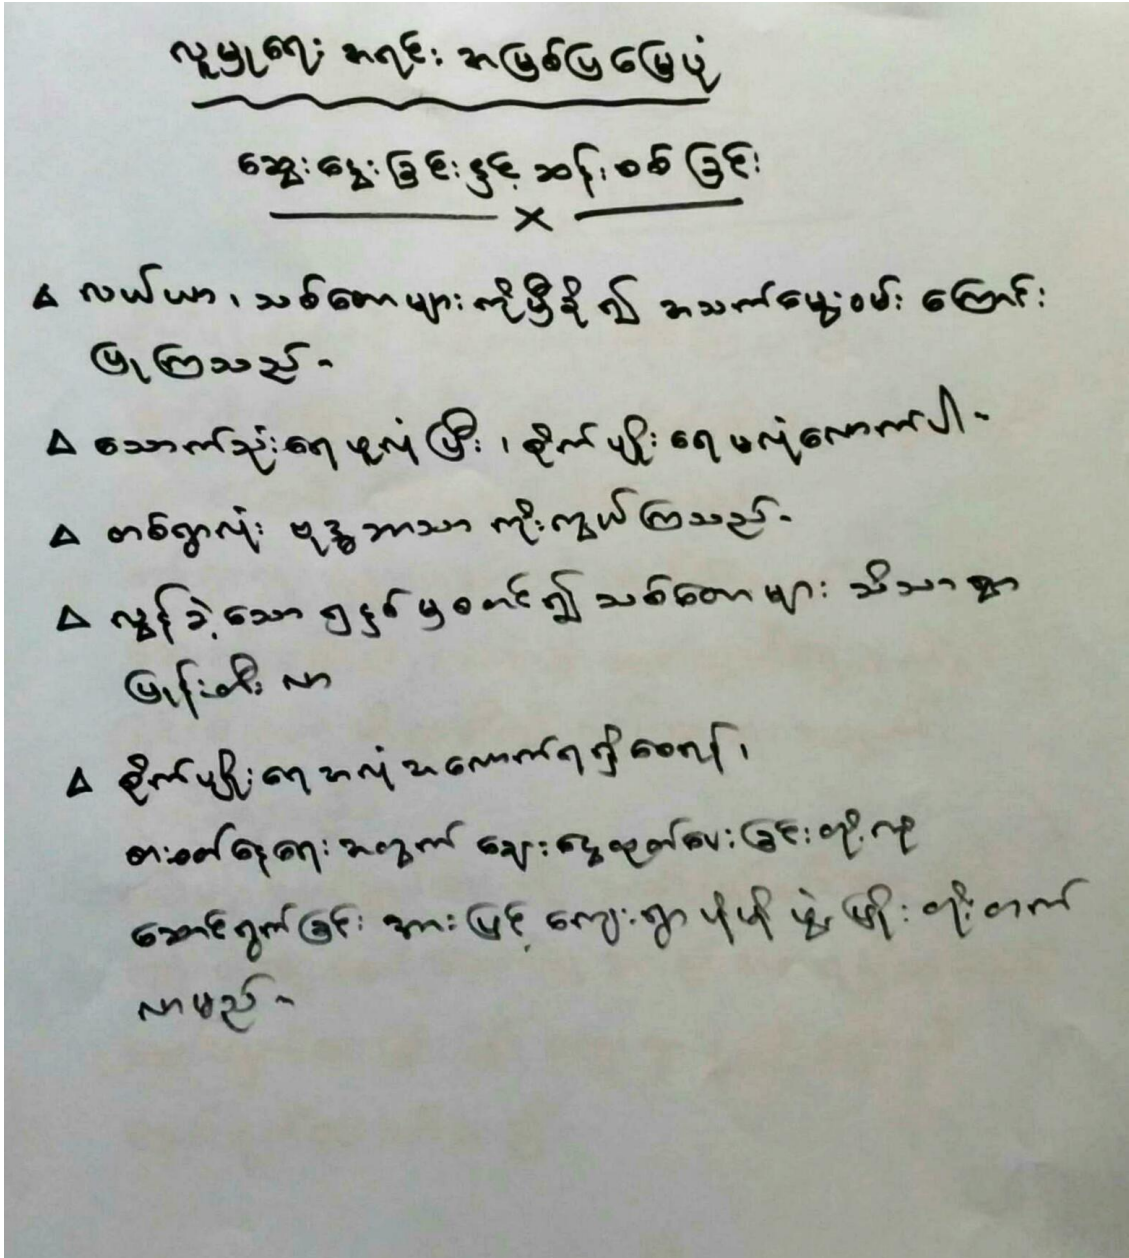 လူမှုရေး အရင်း အမြစ်ပြမြေပုံ
ဆွေးနွေးခြင်းနှင့် ဆန်းစစ်ခြင်း
လယ်ယာ၊ သစ်တောများကိုမှီခို၍ အသက်မွေးဝမ်းကြောင်း
ပြုကြသည်။
သောက်သုံးရေဖူလုံပြီး၊ စိုက်ပျိုးရေမလုံလောက်ပါ။
တစ်ရွာလုံး ဗုဒ္ဓဘာသာ ကိုးကွယ်ကြသည်။
လွန်ခဲ့သော ၅နှစ်မှစတင်၍ သစ်တောများ သိသာစွာ
ပြုန်းတီးလာ
စိုက်ပျိုးရေအလုံအလောက်ရရှိစေရန်၊
စားဝတ်နေရေးအတွက် ချေးငွေထုတ်ပေးခြင်းတို့ကို
ဆောင်ရွက်ခြင်းအားဖြင့် ကျေးရွာပိုမိုဖွံ့ဖြိုးတိုးတက်
လာမည်။